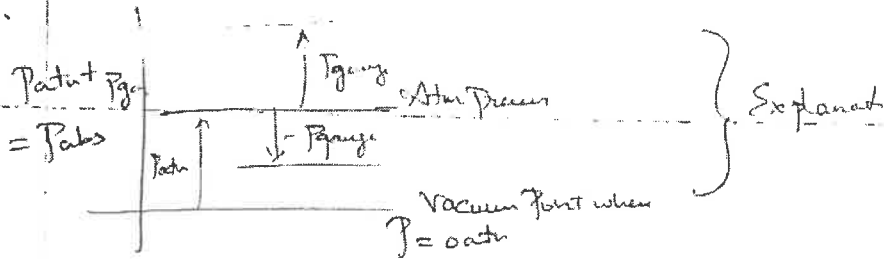 Patm + Pga
= Pabs
Pgauge
Atm Pressure
- Pgauge
Patm
Vacuum Point when
P = 0 atm
} Explanat